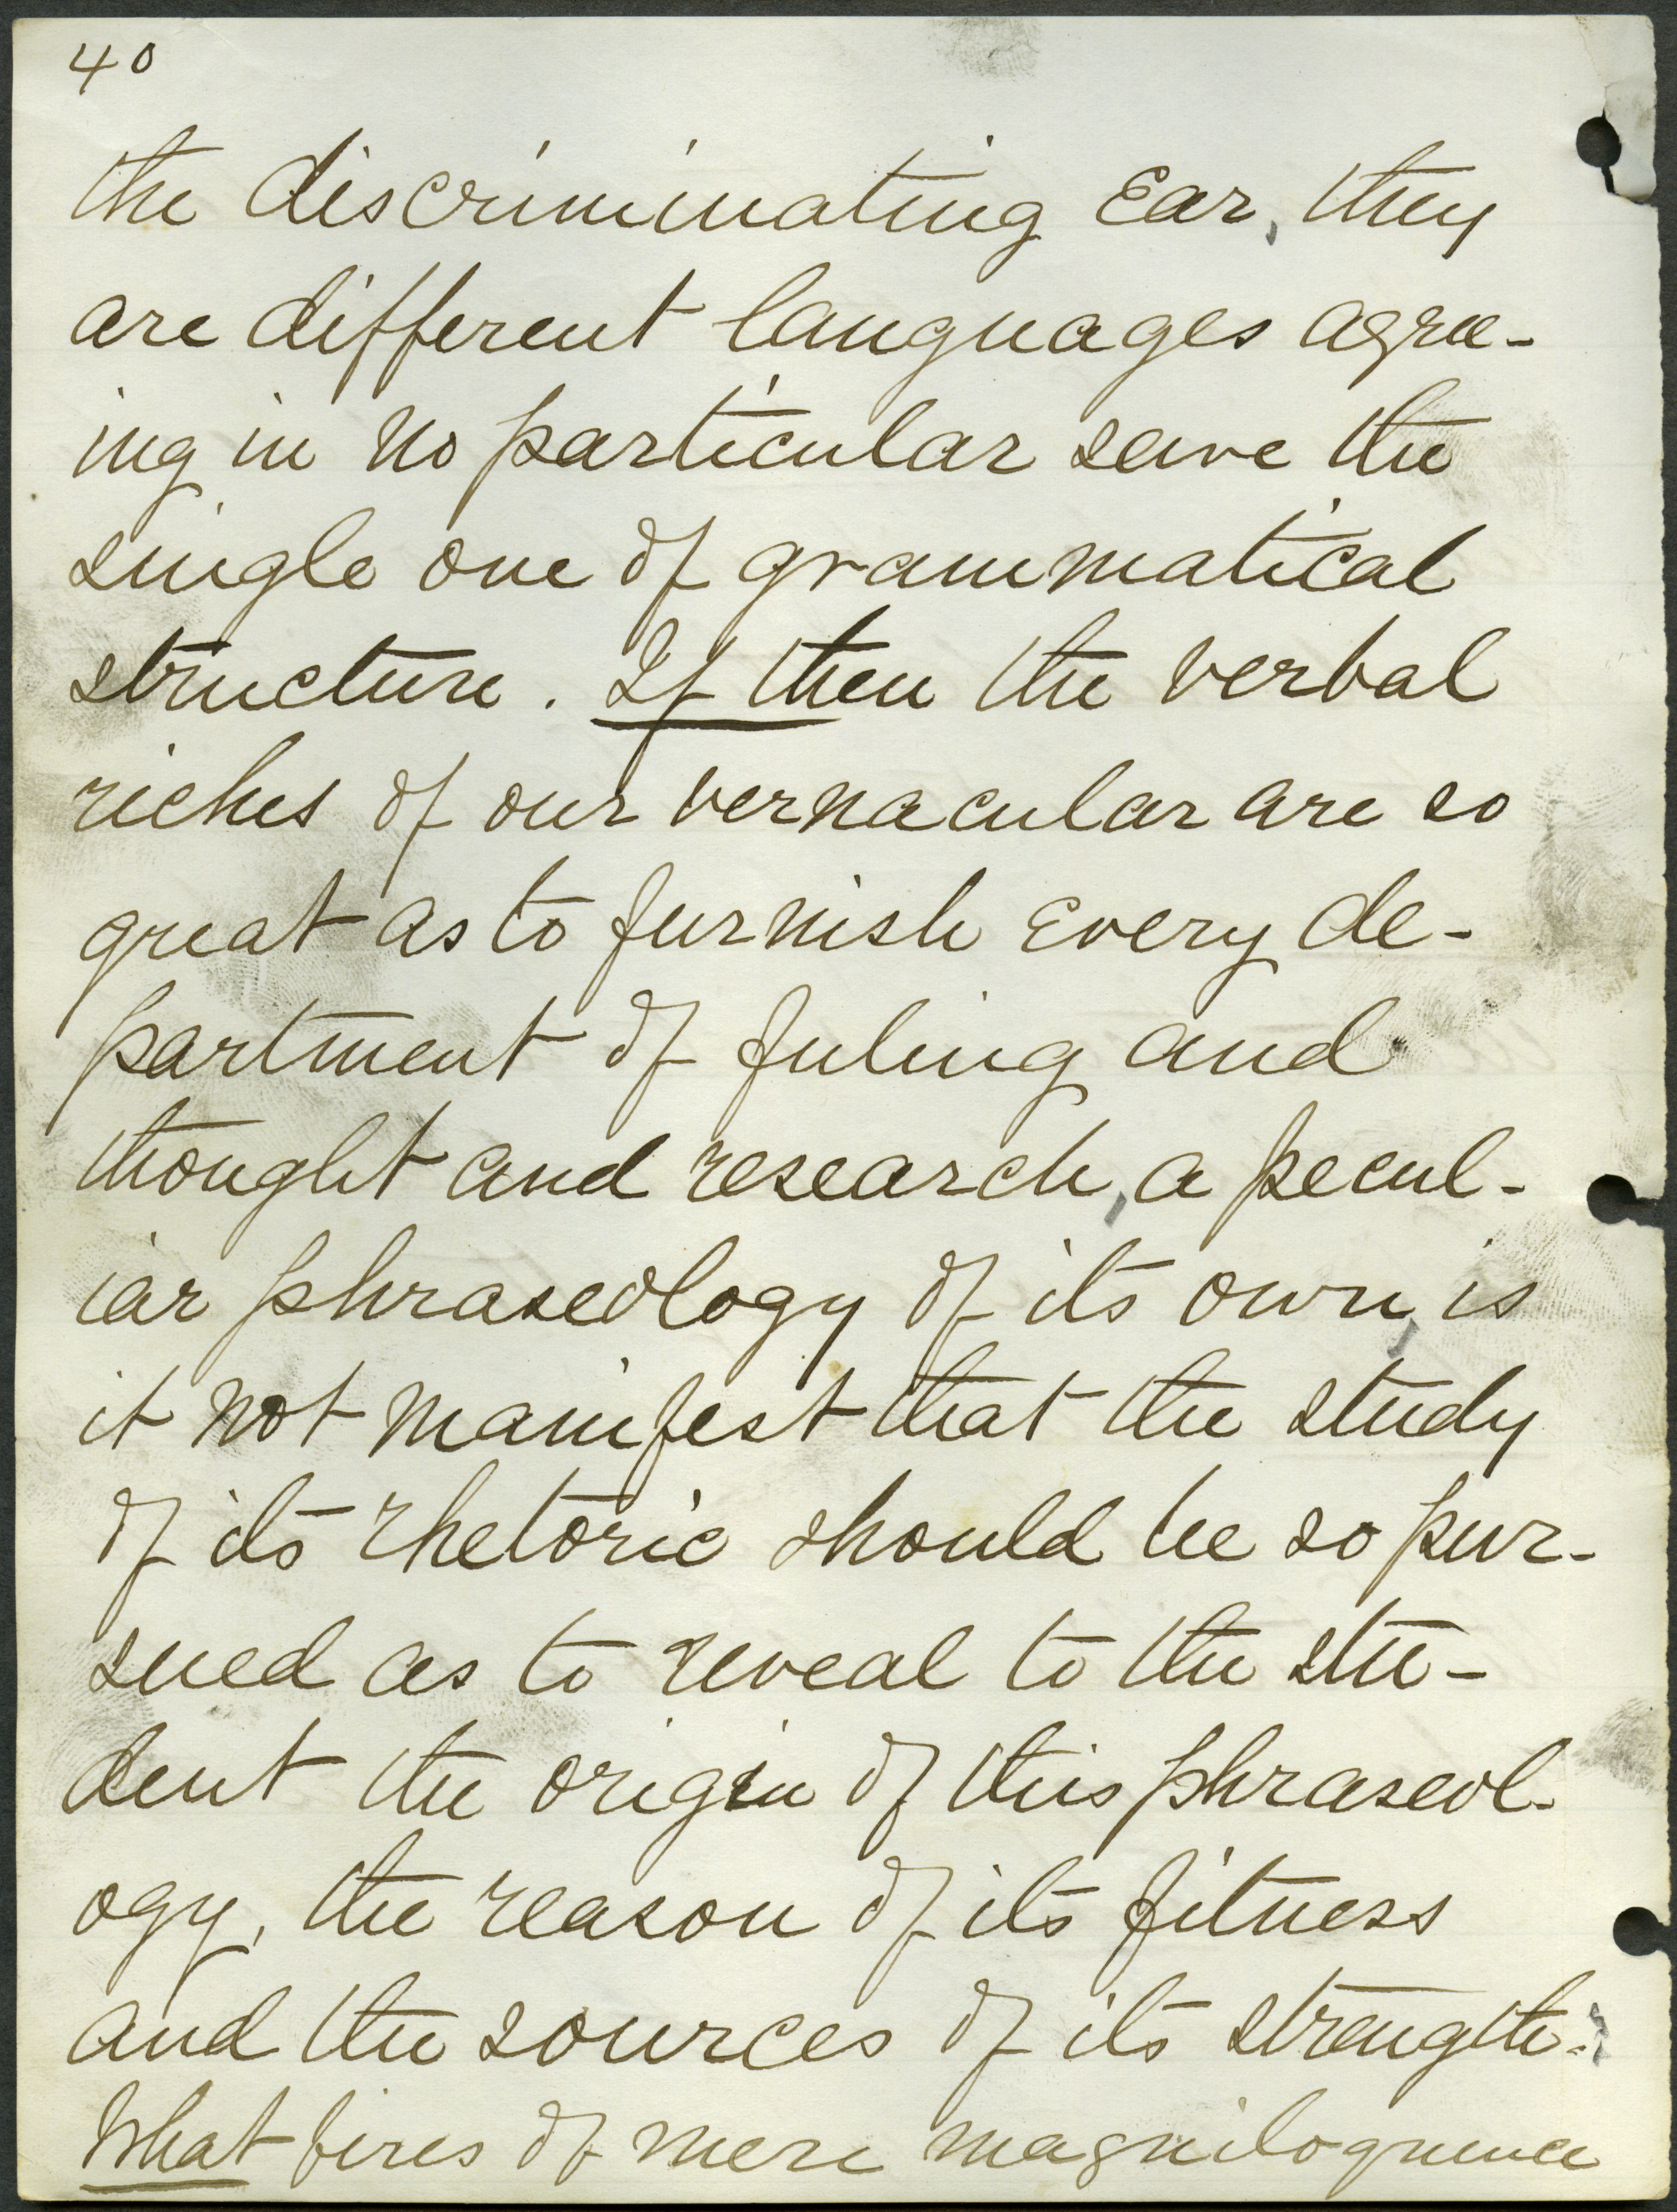 40
the discriminating Ear, they
are different languages agree-
ing in no particular save the
single one of grammatical
structure. If then the verbal
riches of our vernacular are so
great as to furnish every de-
partment of feeling and
thought and research, a pecul-
iar phraseology of its own, is
it not manifest that the study
of its rhetoric should be so pur-
sued as to reveal to the stu-
dent the origin of this phraseol-
ogy, the reason of its fitness
and the sources of its strength?
What fires of mere magniloquence